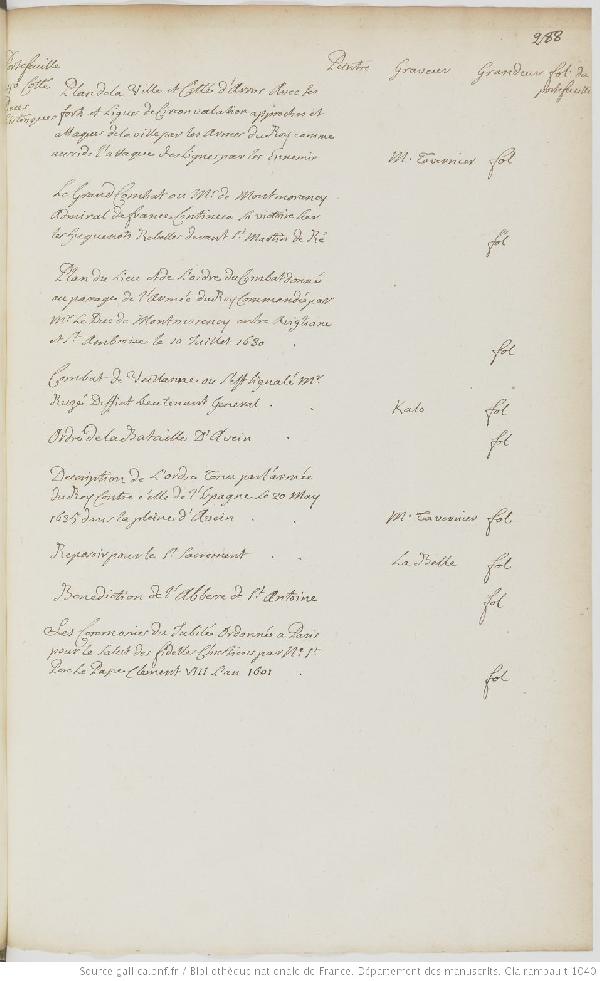 288
Portefeuille Peintre Graveur Grandeur fol. du
portefeuille
Cotté
Plan de la Ville et Citté d'Arras Avec les
forts et Lignes de Circonvalation approches et
attaques de la ville par les Armées du Roy comme
aussi de l'attaque des Lignes par les Ennemis M. Tavernier fol
Le Grand Combat ou Mr. de Montmorency
Admiral de france Continua sa victoire sur
les huguenots Rebelles devant St. Martin de Ré fol
Plan du Lieu et de L'ordre du Combat donné
au passage de l'Armée du Roy Commandée par
Mr. Le Duc de Montmorency entre Avigliane
et St. Ambroise le 10 Juillet 1630 . fol
Combat de Veillanne ou s'est signalé Mr.
Ruzé Deffiat Lieutenant General . . Kalo fol
Ordre de la Bataille D'Avein . fol
Description de L'ordre Tenu par l'armée
du Roy Contre celle de l'Espagne Le 20 May
1635 dans la pleine d'Avein . . M. Tavernier fol
Reposoir pour le St. Sacrement . . La Belle fol
Benediction de l'Abbeye de St. Antoine fol
Les Ceremonies du Jubilé Ordonnés a Paris
pour le salut des fidelles Chrestiens par Ne. St.
Pere Le Pape Clement VIII L'an 1601 . fol
Source gallica.bnf.fr / Bibliothèque nationale de France. Département des manuscrits. Clairambault 1040